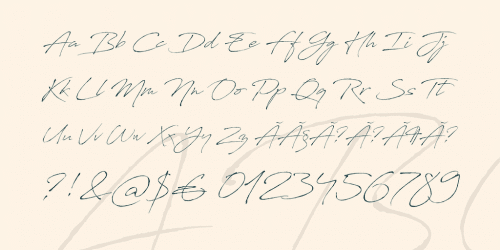 Aa Bb Cc Dd Ee Ff Gg Hh Ii Jj
Kk Ll Mm Nn Oo Pp Qq Rr Ss Tt
Uu Vv Ww Xx Yy Zz
?!&@$€ 0123456789
ABC